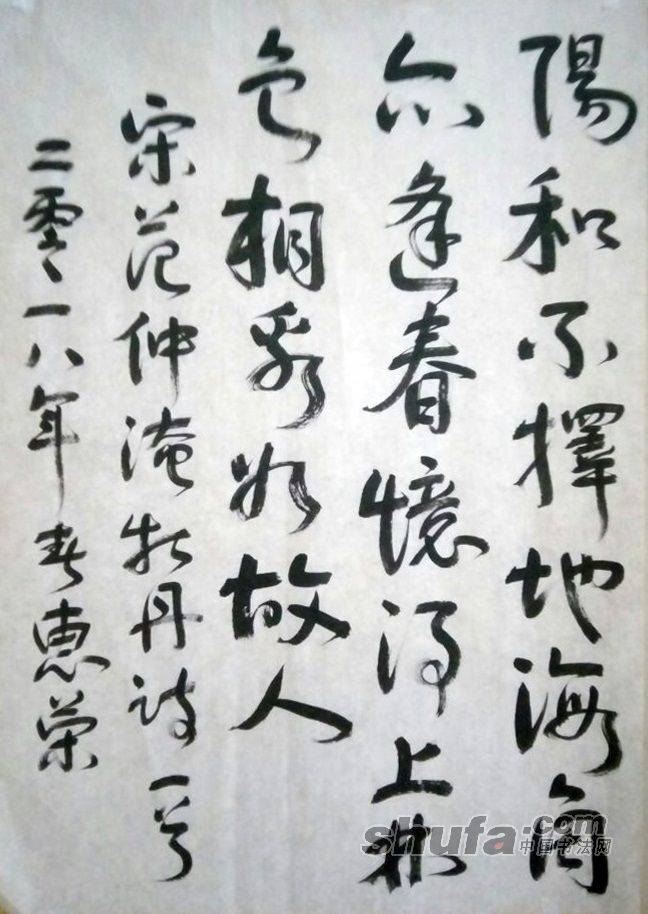 陽和不擇地海角
亦逢春憶得上林
色相看如故人
宋范仲淹牡丹诗一首
二零一八年春惠荣
shufa.com
中国书法网